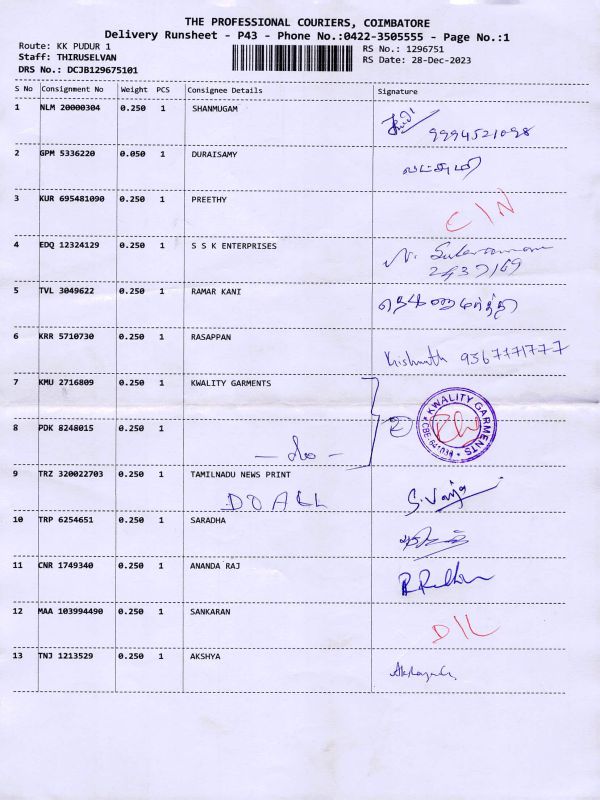 THE PROFESSIONAL COURIERS, COIMBATORE
Delivery Runsheet - P43 - Phone No.:0422-3505555 - Page No.:1
Route: KK PUDUR 1 RS No.: 1296751
Staff: THIRUSELVAN RS Date: 28-Dec-2023
DRS No.: DCJB129675101
S No Consignment No Weight PCS Consignee Details Signature
1 NLM 20000304 0.250 1 SHANMUGAM
9994521098
2 GPM 5336220 0.050 1 DURAISAMY
3 KUR 695481090 0.250 1 PREETHY
C/N
4 EDQ 12324129 0.250 1 S S K ENTERPRISES
2437169
5 TVL 3049622 0.250 1 RAMAR KANI
6 KRR 5710730 0.250 1 RASAPPAN
9367771777
7 KMU 2716809 0.250 1 KWALITY GARMENTS
KWALITY GARMENTS
CBE-641038
8 PDK 8248015 0.250 1
- do -
9 TRZ 320022703 0.250 1 TAMILNADU NEWS PRINT
DO ALL
10 TRP 6254651 0.250 1 SARADHA
11 CNR 1749340 0.250 1 ANANDA RAJ
12 MAA 103994490 0.250 1 SANKARAN
D/L
13 TNJ 1213529 0.250 1 AKSHYA